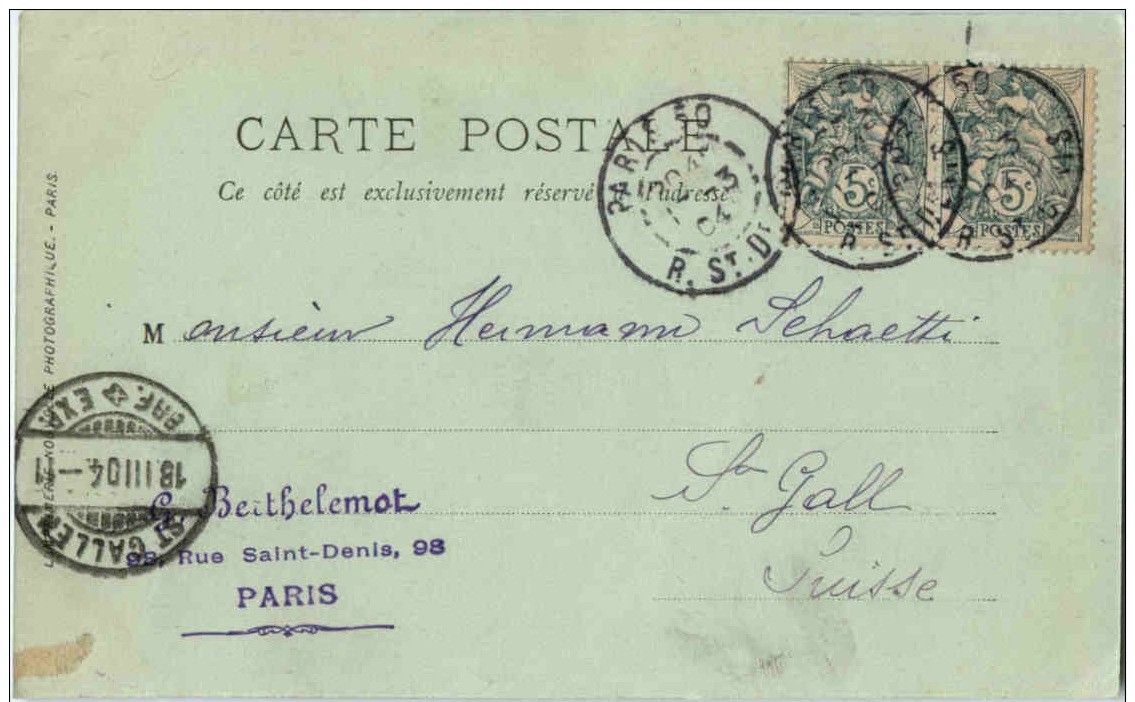 CARTE POSTALE
Ce côté est exclusivement réservé à l'adresse
PARIS 50
R. ST. DENIS
5c
POSTES
5c
POSTES
Monsieur Hermann Schaetti
St Gall
Suisse
BRF. EXP.
18 III 04 — 1
ST GALLEN
G. Berthelemot
98, Rue Saint-Denis, 98
PARIS
PHOTOGRAPHIQUE. - PARIS.